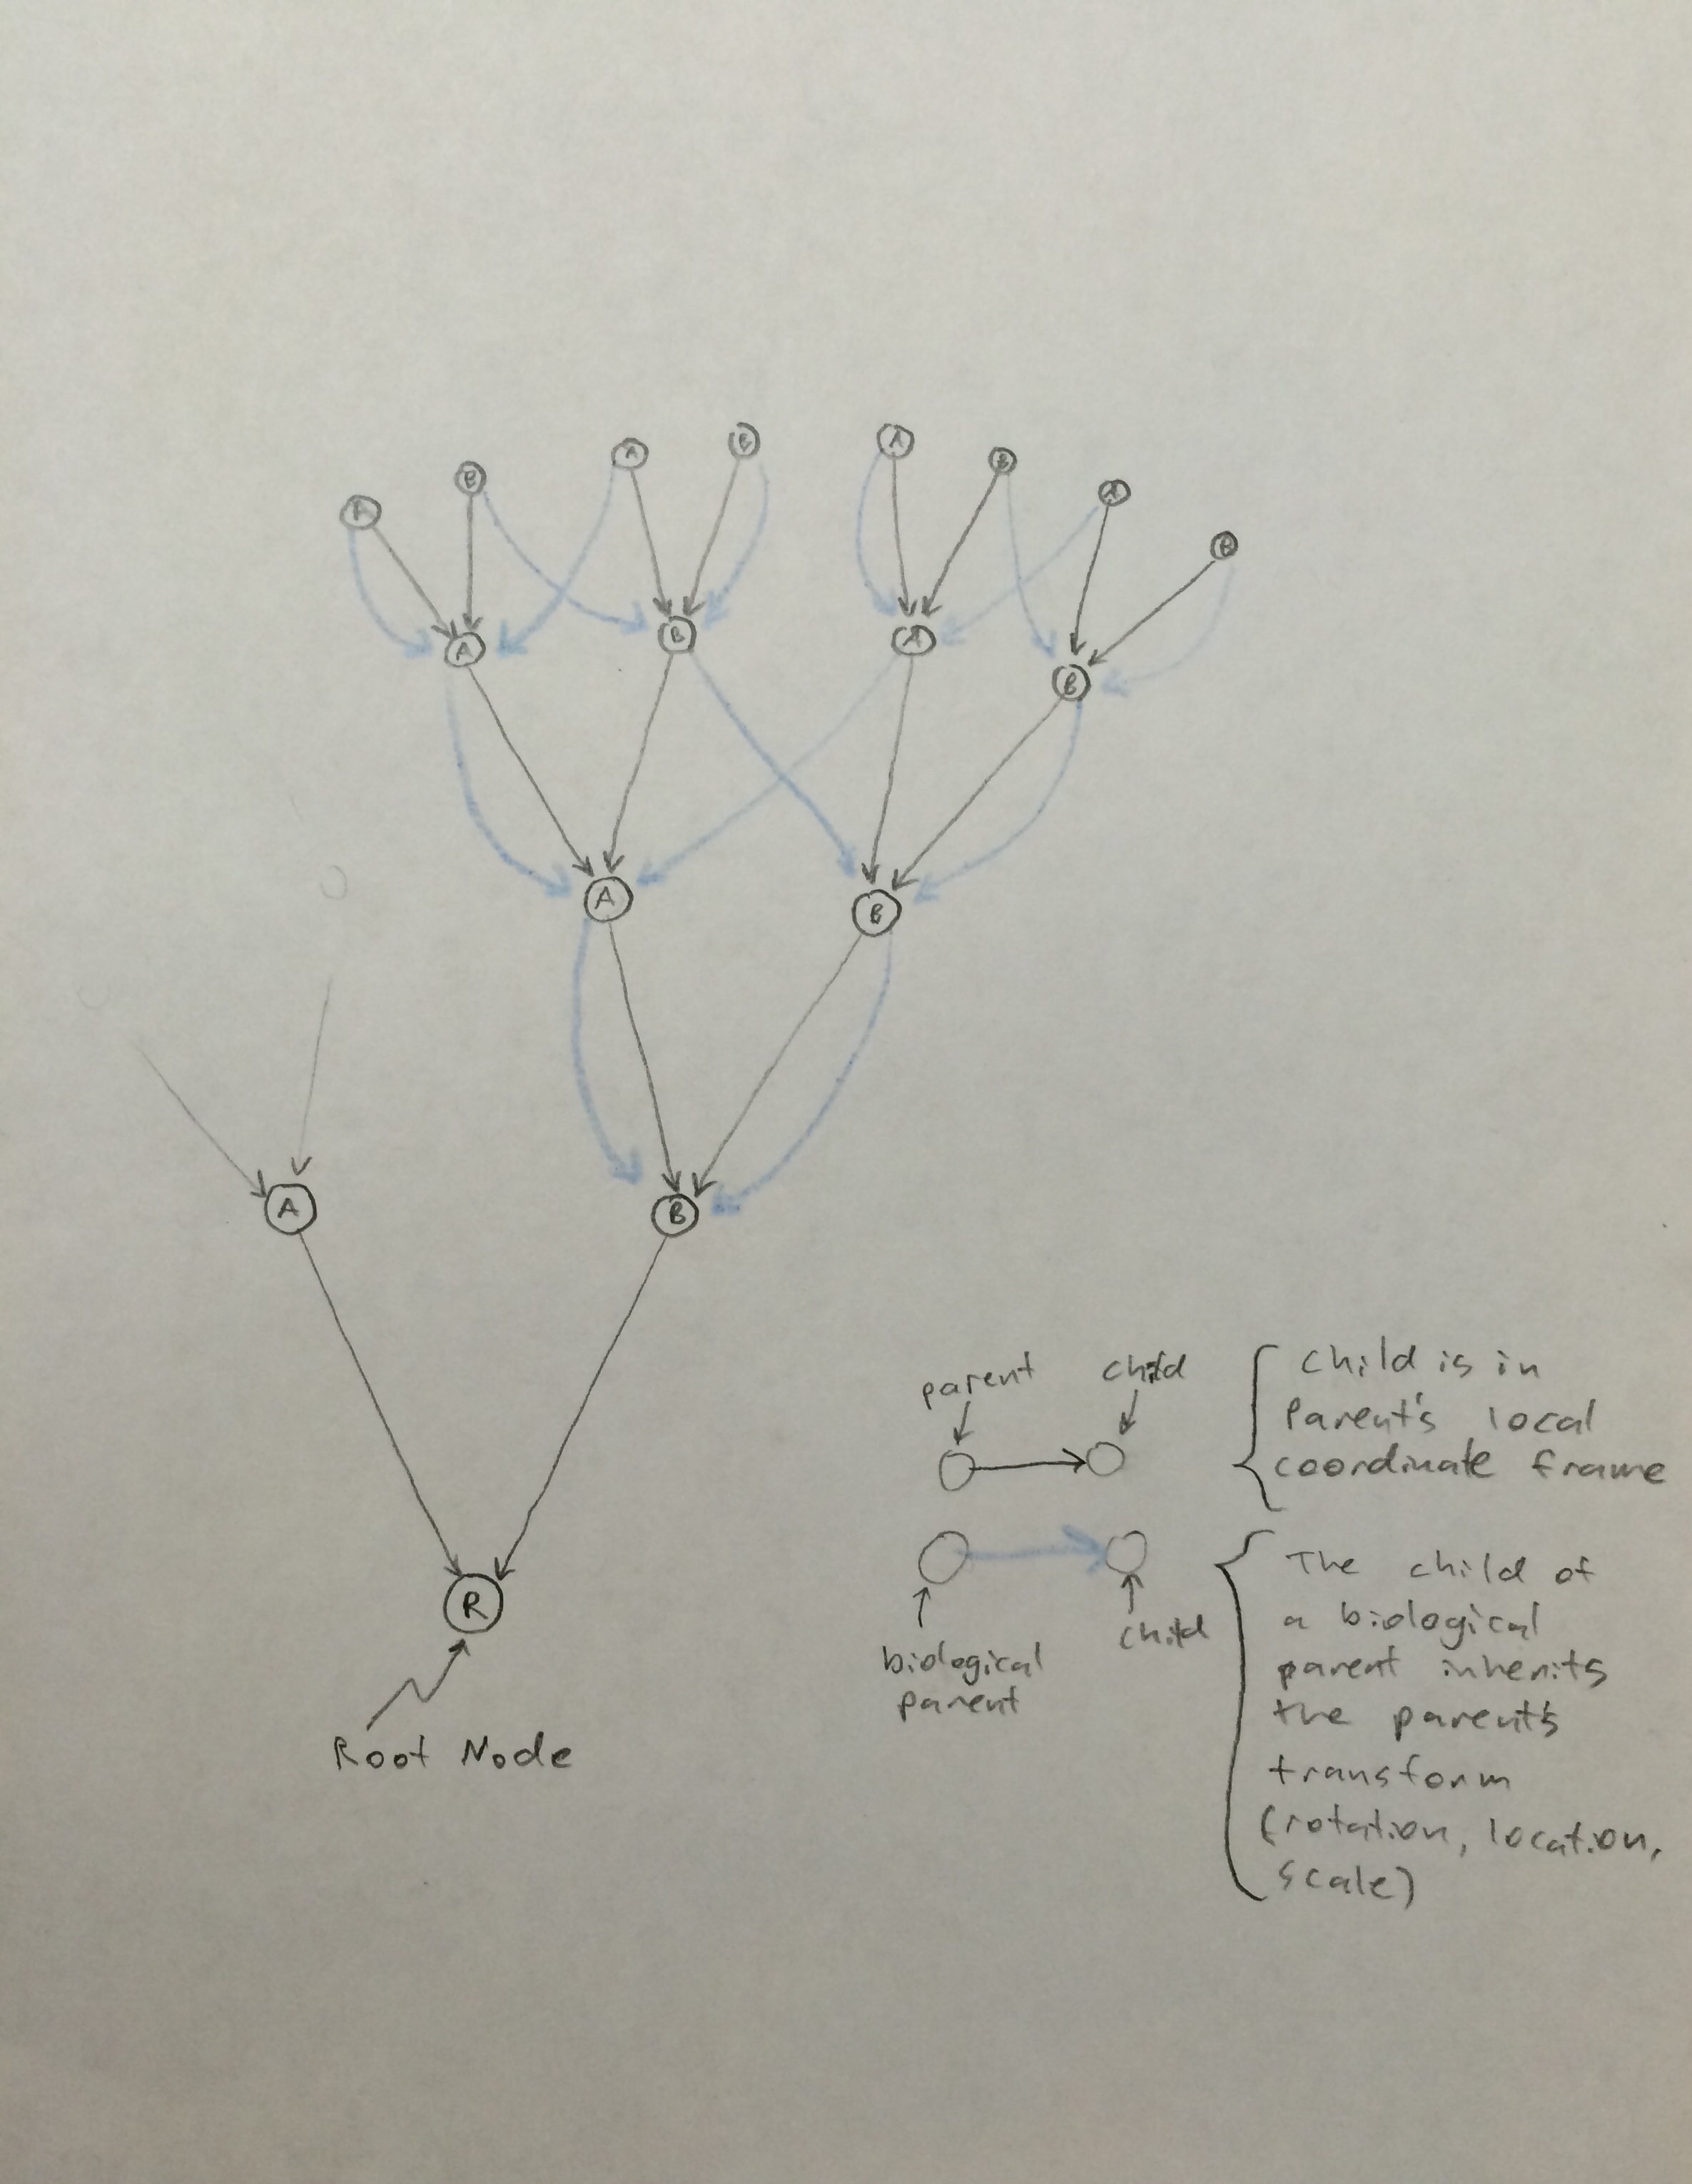 A
B
A
B
A
B
A
B
A
B
A
B
A
B
A
B
R
Root Node
parent child
child is in
Parent's local
coordinate frame
biological
parent
child
The child of
a biological
parent inherits
the parent's
transform
(rotation, location,
scale)